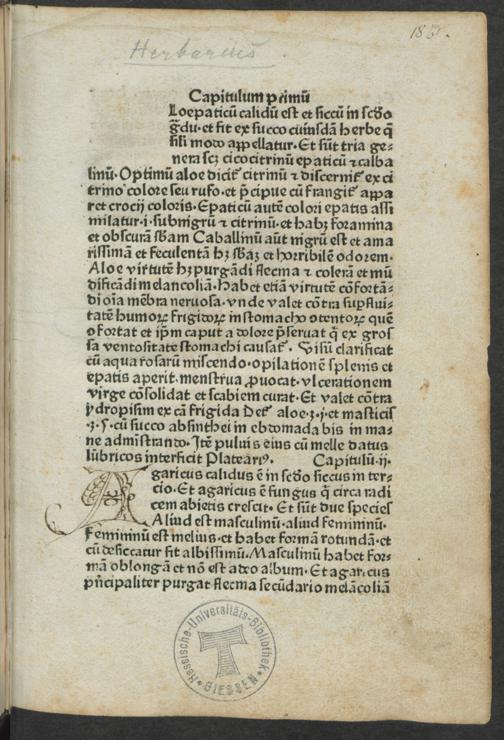 183.
Herbarius.
Capitulum primū
Loepaticū calidū est et siccū in scd̄o
gr̄du. et fit ex succo cuiusdā herbe q̄
sili modo appellatur. Et sūt tria ge=
nera scꝫ cicocitrinū epaticū ⁊ calba
linū. Optimū aloe dicit̄ citrinū ⁊ discernit̄ ex ci
trino colore seu rufo. et p̄cipue cū frangit̄ appa
ret crocij coloris. Epaticū autē colori epatis assi
milatur .i. subnigrū ⁊ citrinū. et habꝫ foramina
et obscurā sb̄am Caballinū aūt nigrū est et ama
rissimā et feculentā hꝫ sb̄aꝫ et horribilē odorem.
Aloe virtutē hꝫ purgādi flecma ⁊ colerā et mū
dificādi melancoliā. Habet etiā virtutē cōfortā=
di oīa mēbra neruosa. vnde valet cōtra suꝑflui=
tatē humoꝝ frigidoꝝ in stomacho otentoꝝ quē
ofortat et ip̄m caput a dolore p̄seruat q̄ ex gros
sa ventositate stomachi causat̄. Visū clarificat
cū aqua rosarū miscendo. opilationē splenis et
epatis aperit. menstrua ꝓuocat. vlcerationem
virge cōsolidat et scabiem curat. Et valet cōtra
ydropisim ex cā frigida Def̄ aloe .ʒ.j. et masticis
.ʒ.s. cū succo absinthei in ebdomada bis in ma=
ne admīstrando. Itē puluis eius cū melle datus
lūbricos interficit Platearꝰ. Capitulū .ij.
Agaricus calidus ē in scd̄o siccus in ter=
cio. Et agaricus ē fungus q̄ circa radi
cem abietis crescit. Et sūt due species
Aliud est masculinū. aliud femininū.
Femininū est melius. et habet formā rotundā. et
cū desiccatur fit albissimū. Masculinū habet for=
mā oblongā et nō est adeo album. Et agaricus
pn̄cipaliter purgat flecma secūdario melācoliā
Hessische-Universitäts-Bibliothek
GIESSEN